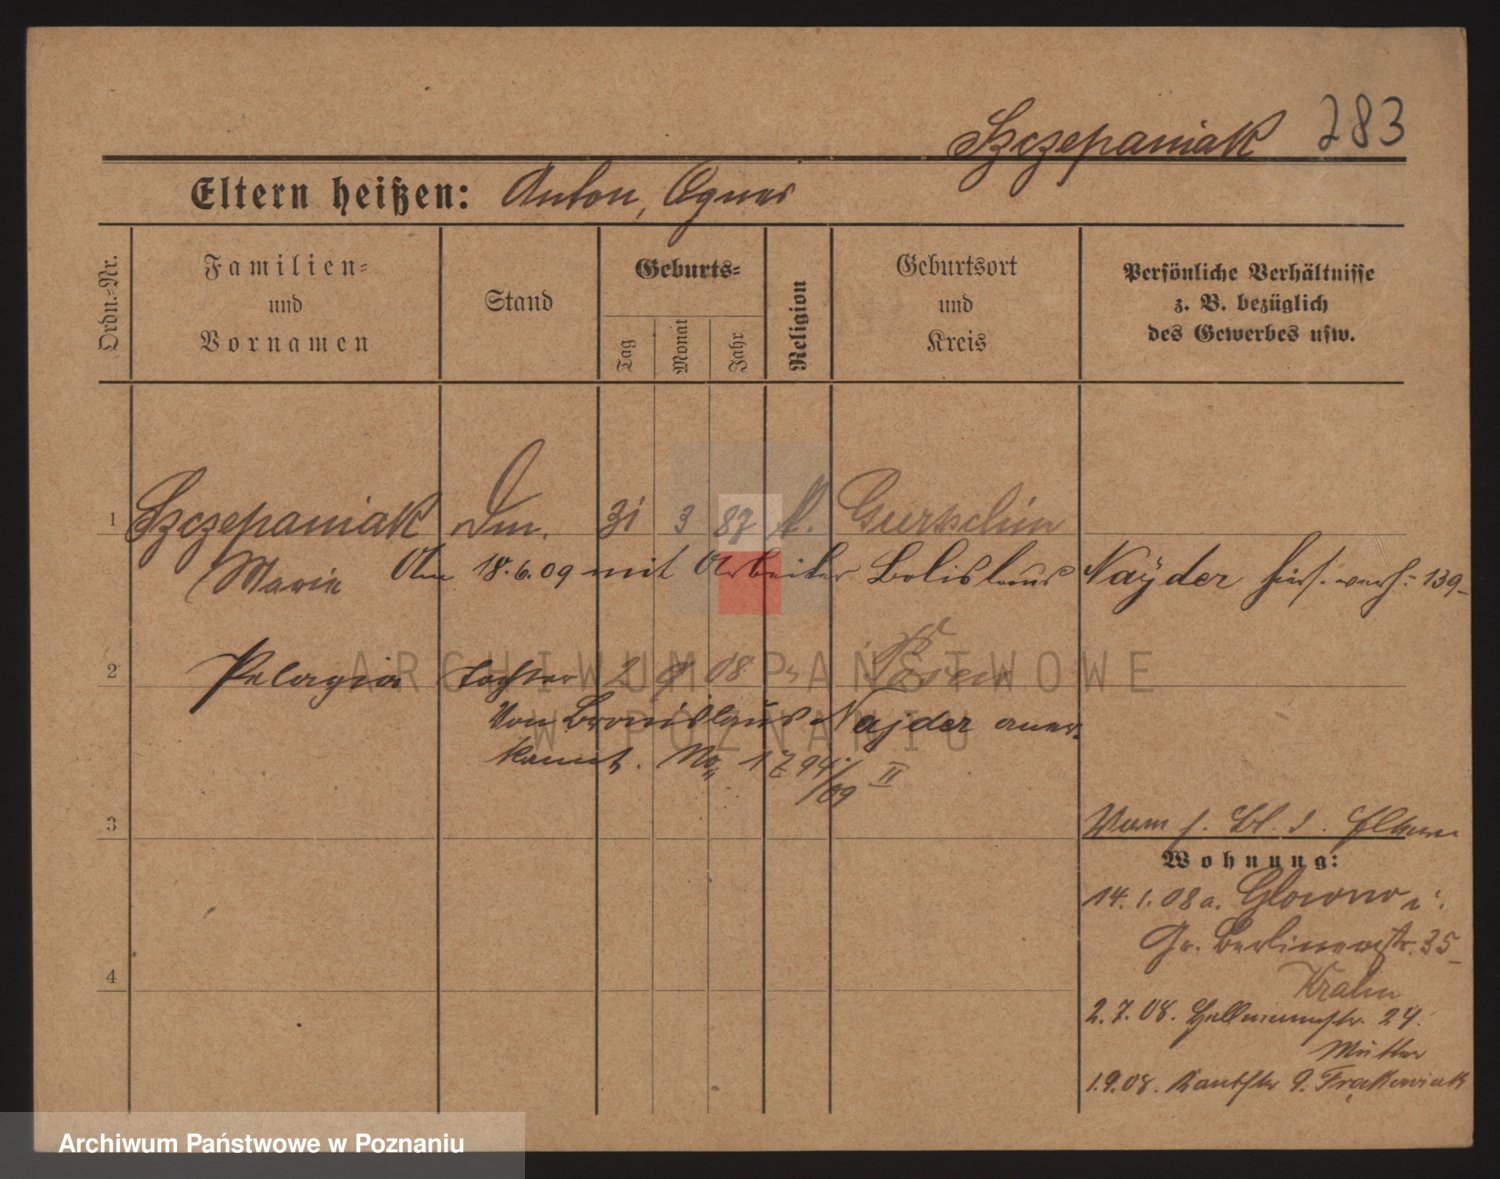 Szczepaniak 283
Eltern heißen: Anton, Agnes
Ordn.-Nr.
Familien-
und
Vornamen
Stand
Geburts-
Tag
Monat
Jahr
Religion
Geburtsort
und
Kreis
Persönliche Verhältnisse
z. B. bezüglich
des Gewerbes usw.
1 Szczepaniak 31 3 87 k. Gurtschin
Marie Am 18.6.09 mit Arbeiter Bolislaus Nayder hies. verh. 139
2 Pelagia Tochter 2 9 08 " Posen
Von Bronislaus Najder aner-
kannt. No 1794/09 II
3
Wohnung:
14.1.08 a. Glowno
Gr. Berlinerstr. 35
Krahn
2.7.08. 24.
Mutter
4
1.9.08. 9. Frąckowiak
ARCHIWUM PAŃSTWOWE
W POZNANIU
Archiwum Państwowe w Poznaniu